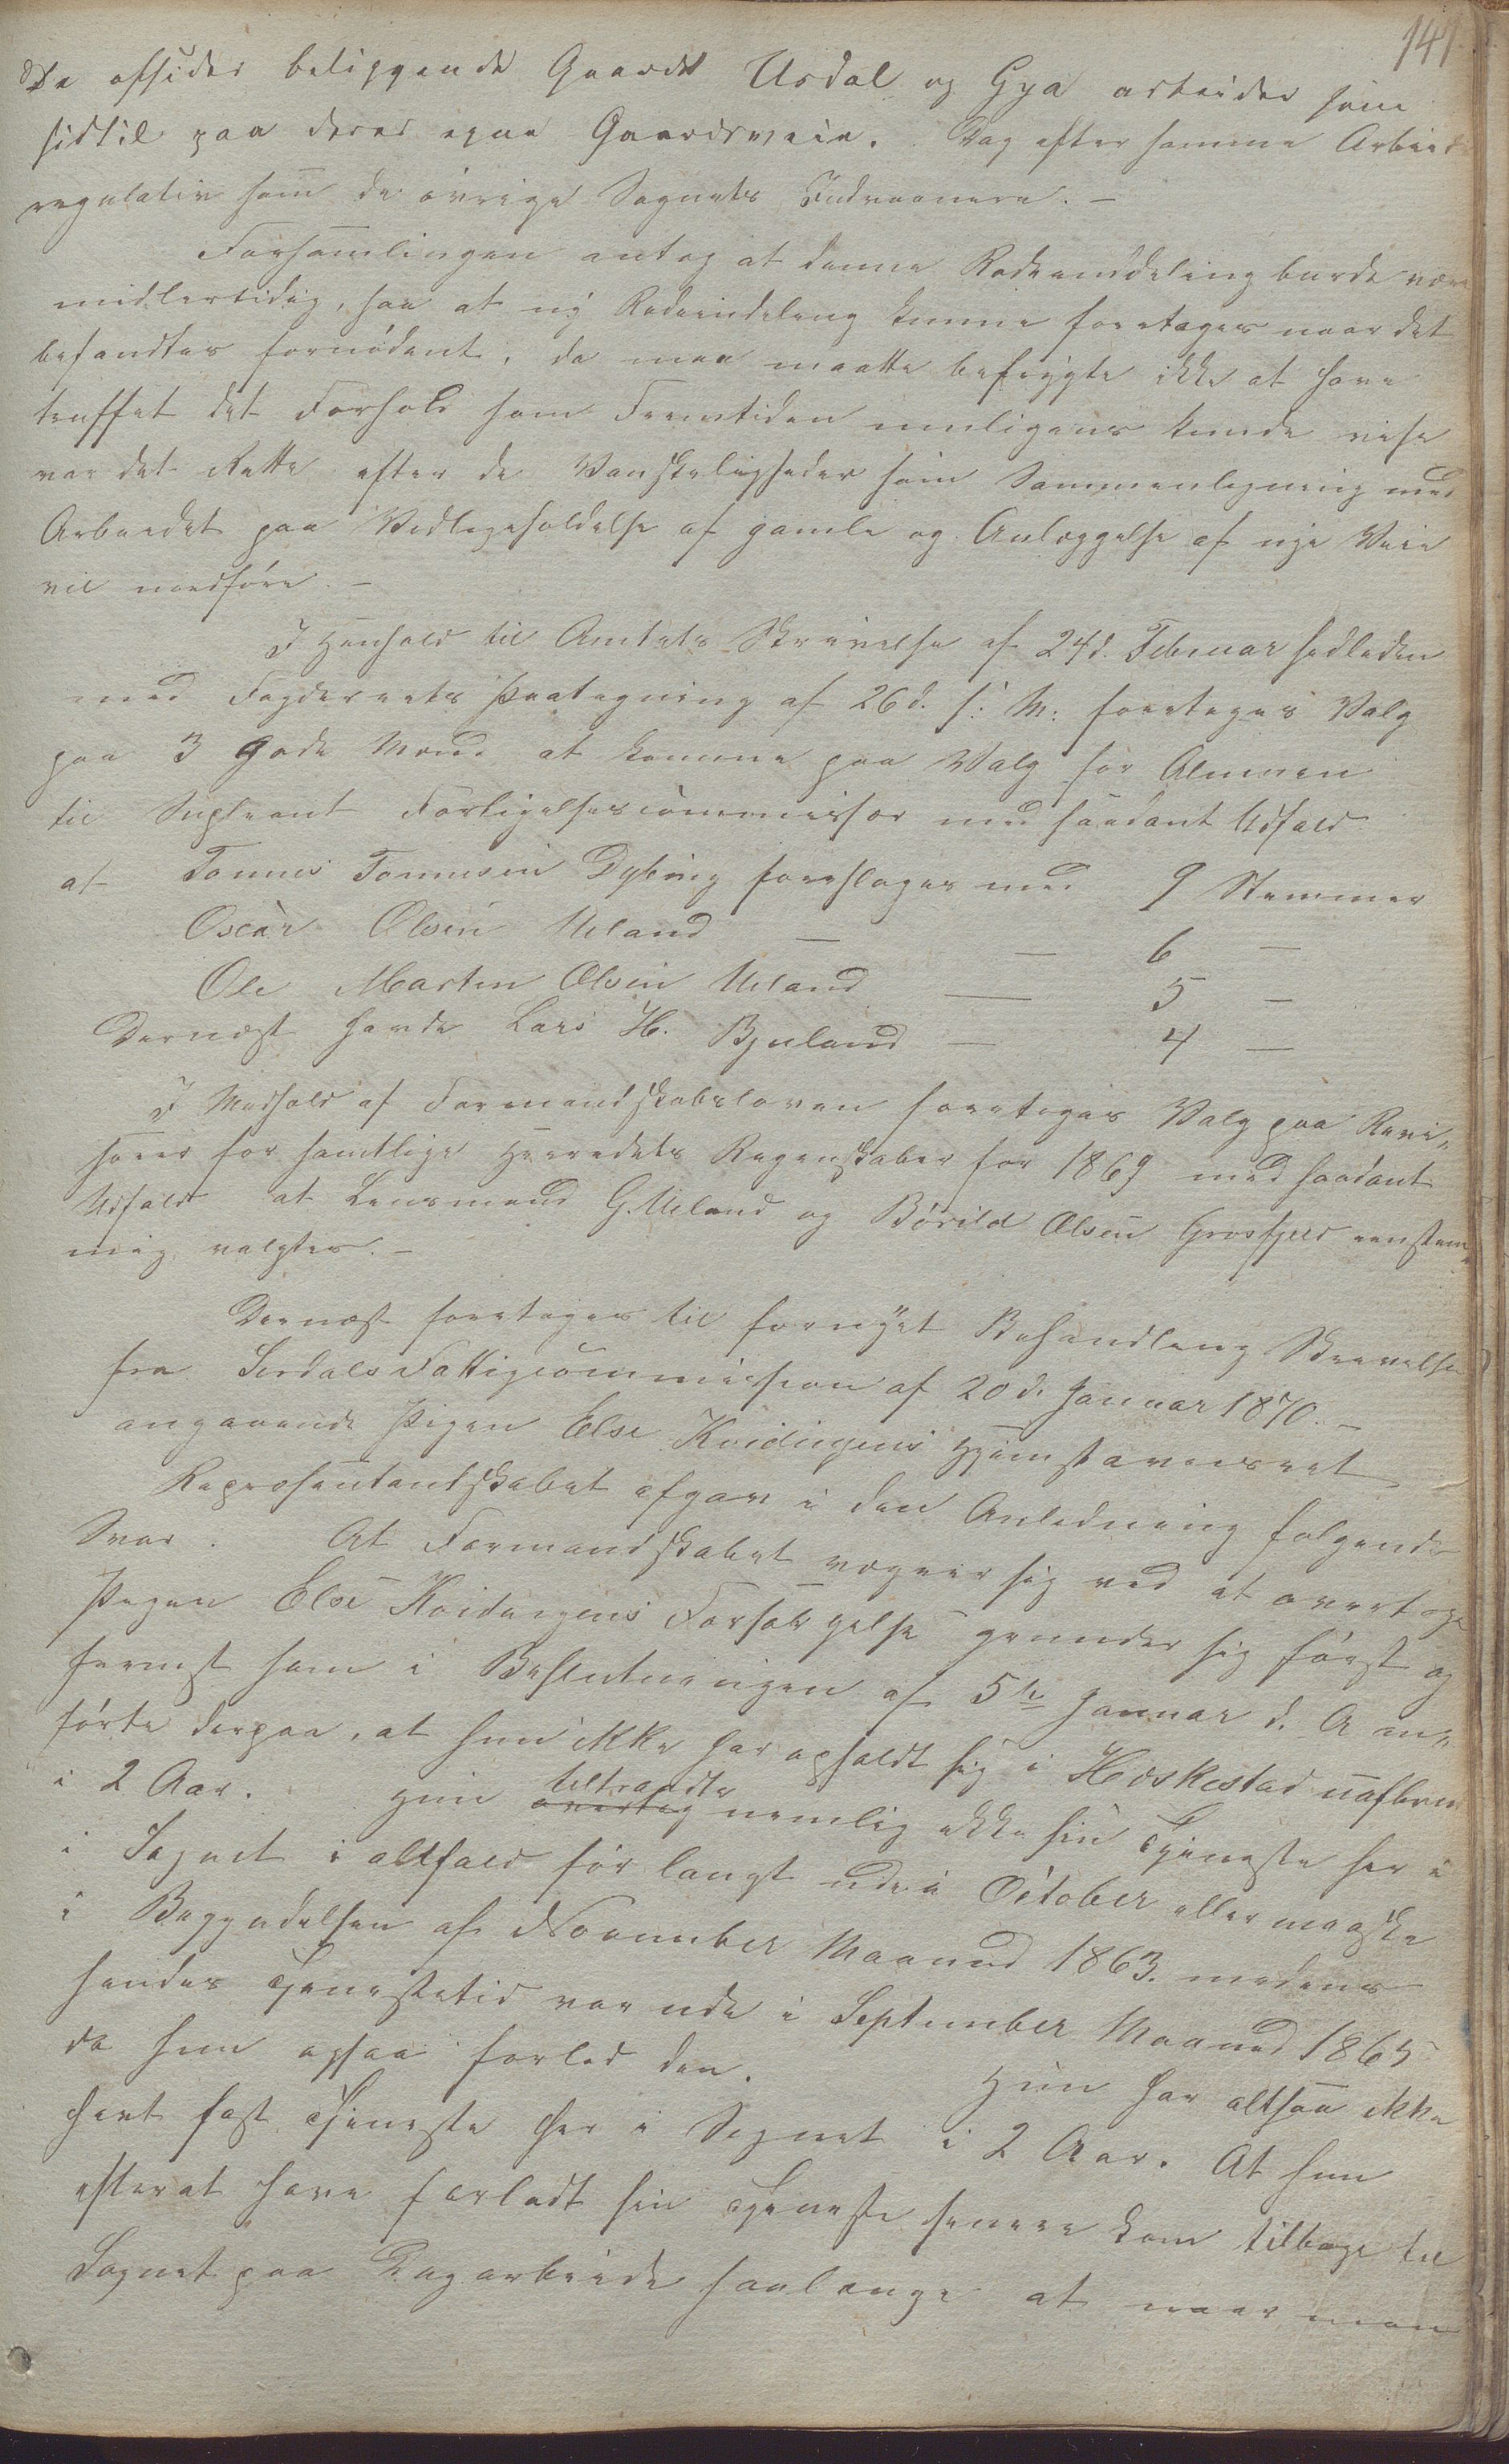 141
De afsides beliggende Gaarde Usdal og Gya arbeider som
hidtil paa deres egne Gaardsveie. Dog efter samme Arbeids
regulativ som de øvrige Sognets Indvaanere. –
Forsamlingen antog at denne Rodeinddeling burde være
midlertidig, saa at ny Rodeindeling kunne foretages naar det
befandtes fornødent, da man maatte befrygte ikke at have
truffet det Forhold som Fremtiden muligens kunde vise
var det Rette efter de Vanskeligheder som Sammenligning med
Arbeidet paa Vedligeholdelse af gamle og Anlæggelse af nye Veie
vil medføre. –
I Henhold til Amtets Skrivelse af 24d. Februar sidleden
med Fogderiets Paategning af 26d. s: M: foretages Valg
paa 3 gode Mænd at komme paa Valg for Almuen
til Supleant Forligelsescommissær med saadant Udfald
at Tønnes Tønnesen Dybing foreslages med 9 Stemmer
Oscar Olsen Ueland — — 6 —
Ole Martin Olsen Ueland — 5 —
Dernæst havde Lars H. Bjuland — 4 —
I Medhold af Formandskabsloven foretages Valg paa Revi„
sorer for samtlige Herredets Regenskaber for 1869 med saadant
Udfald at Lensmand G. Ueland og Børild Olsen Grosfjeld eenstem„
mig valgtes. –
Dernæst foretages til fornyet Behandling Skrivelse
fra Sirdals Fattigcommission af 20d. Januar 1870. –
angaaende Pigen Else Kvidingens Hjemstavnsret
Repræsentantskabet afgav i den Anledning følgende
Svar. At Formandskabet vægrer sig ved at overtage
Pigen Else Kvidingens Forsørgelse grunder sig først og
fremst som i Beslutningen af 5te Januar d. A an„
førte derpaa, at hun ikke har opholdt sig i Heskestad uafbrudt
i 2 Aar. Hun overtog tiltraadte nemlig ikke sin Tjeneste her i
i Sognet i altfald før langt ude i October eller maaske
i Begyndelsen af November Maaned 1863. medens
hendes Tjenestetid var ude i September Maaned 1865
da hun ogsaa forlod den. Hun har altsaa ikke
havt fast Tjeneste her i Sognet i 2 Aar. At hun
efterat have forladt sin Tjeneste senere kom tilbage til
Sognet paa Dagarbeide saalænge at naar man